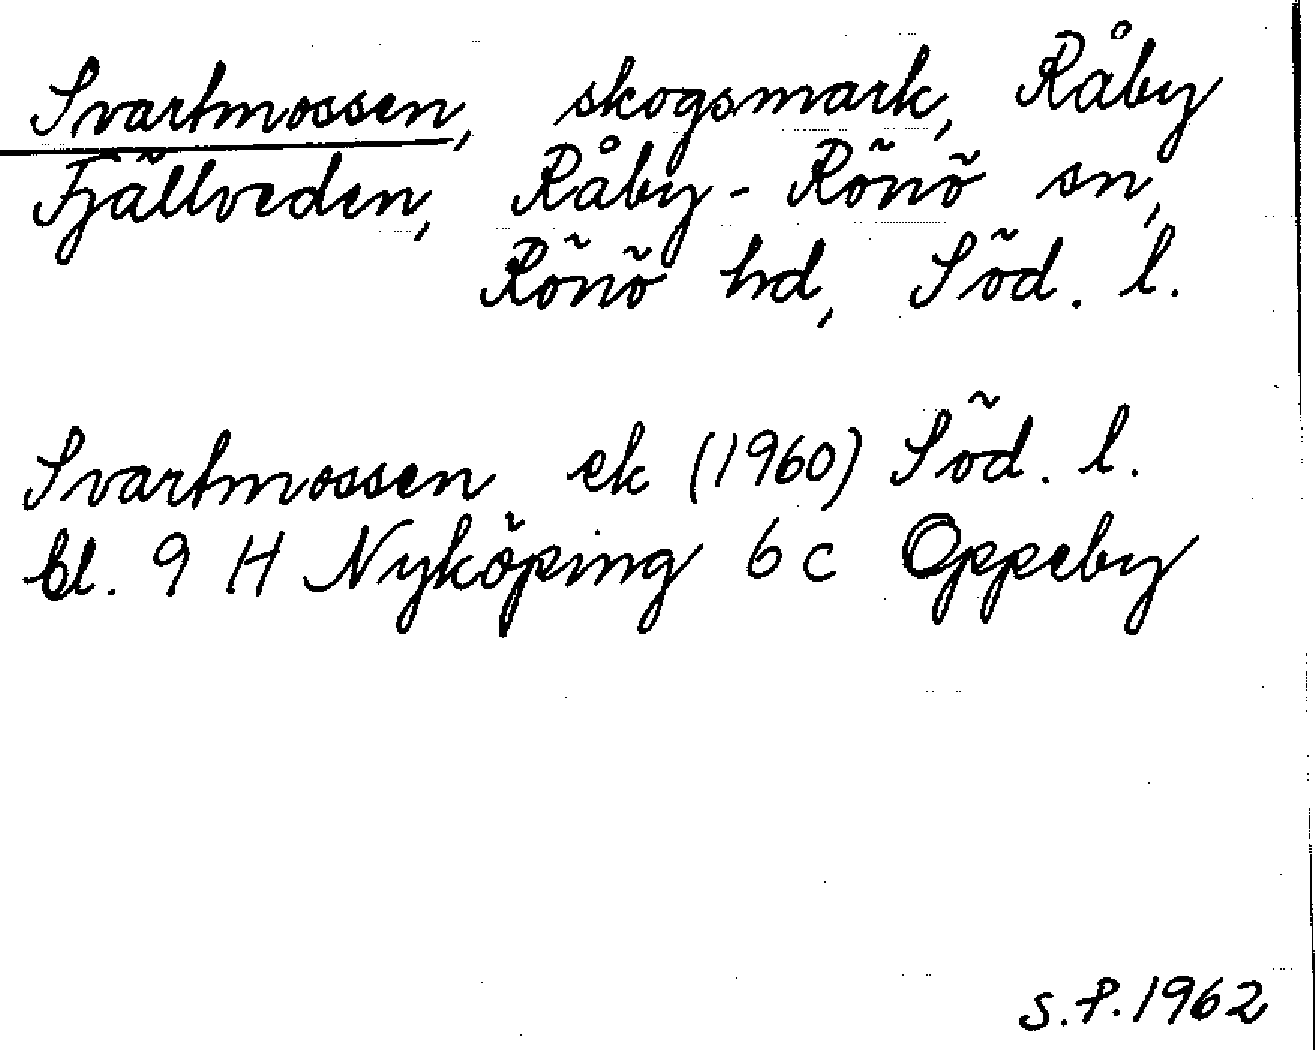 Svartmossen, skogsmark, Råby
Fjällveden, Råby-Rönö sn,
Rönö hd, Söd. l.
Svartmossen ek (1960) Söd. l.
bl. 9 H Nyköping 6 c Oppeby
S.P. 1962